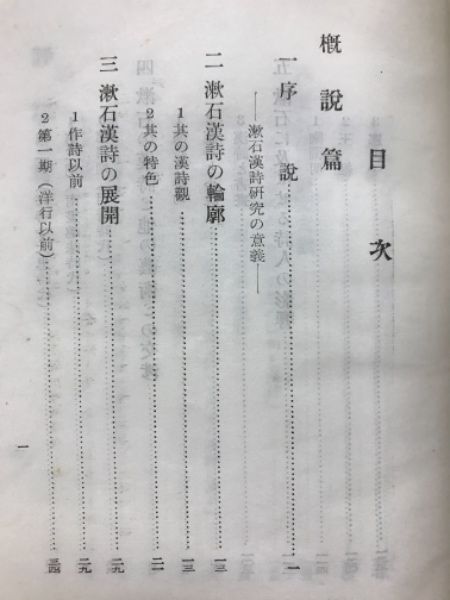 目次
概說篇
一 序說……一
――漱石漢詩研究の意義――
二 漱石漢詩の輪廓……一三
1 其の漢詩觀……一三
2 其の特色……二一
三 漱石漢詩の展開……二九
1 作詩以前……二九
2 第一期（洋行以前）……三四
一